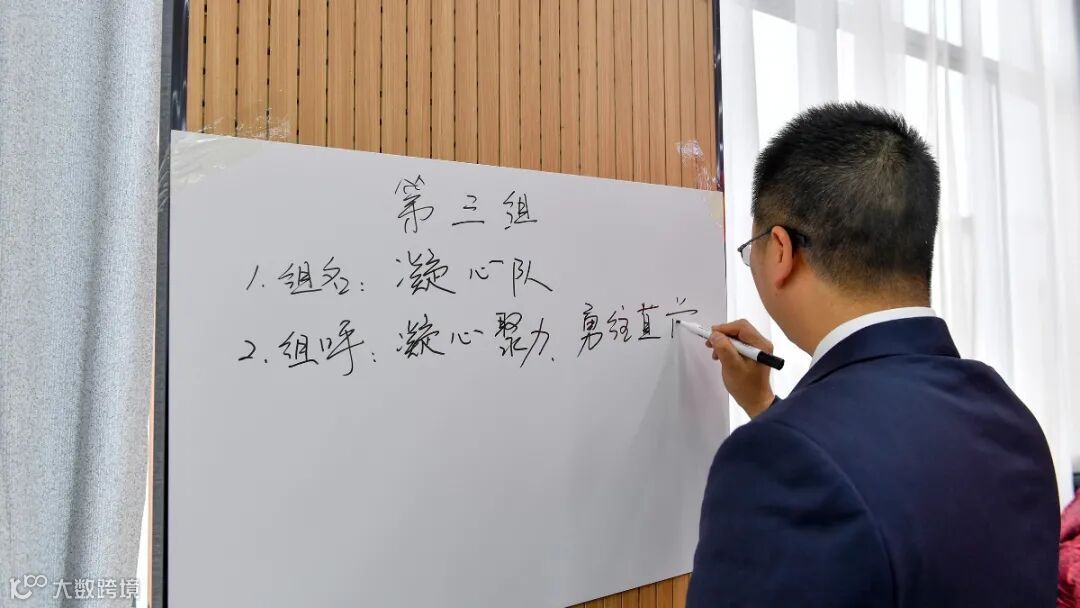 第三组
1. 组名：凝心队
2. 组呼：凝心聚力、勇往直
大数跨境